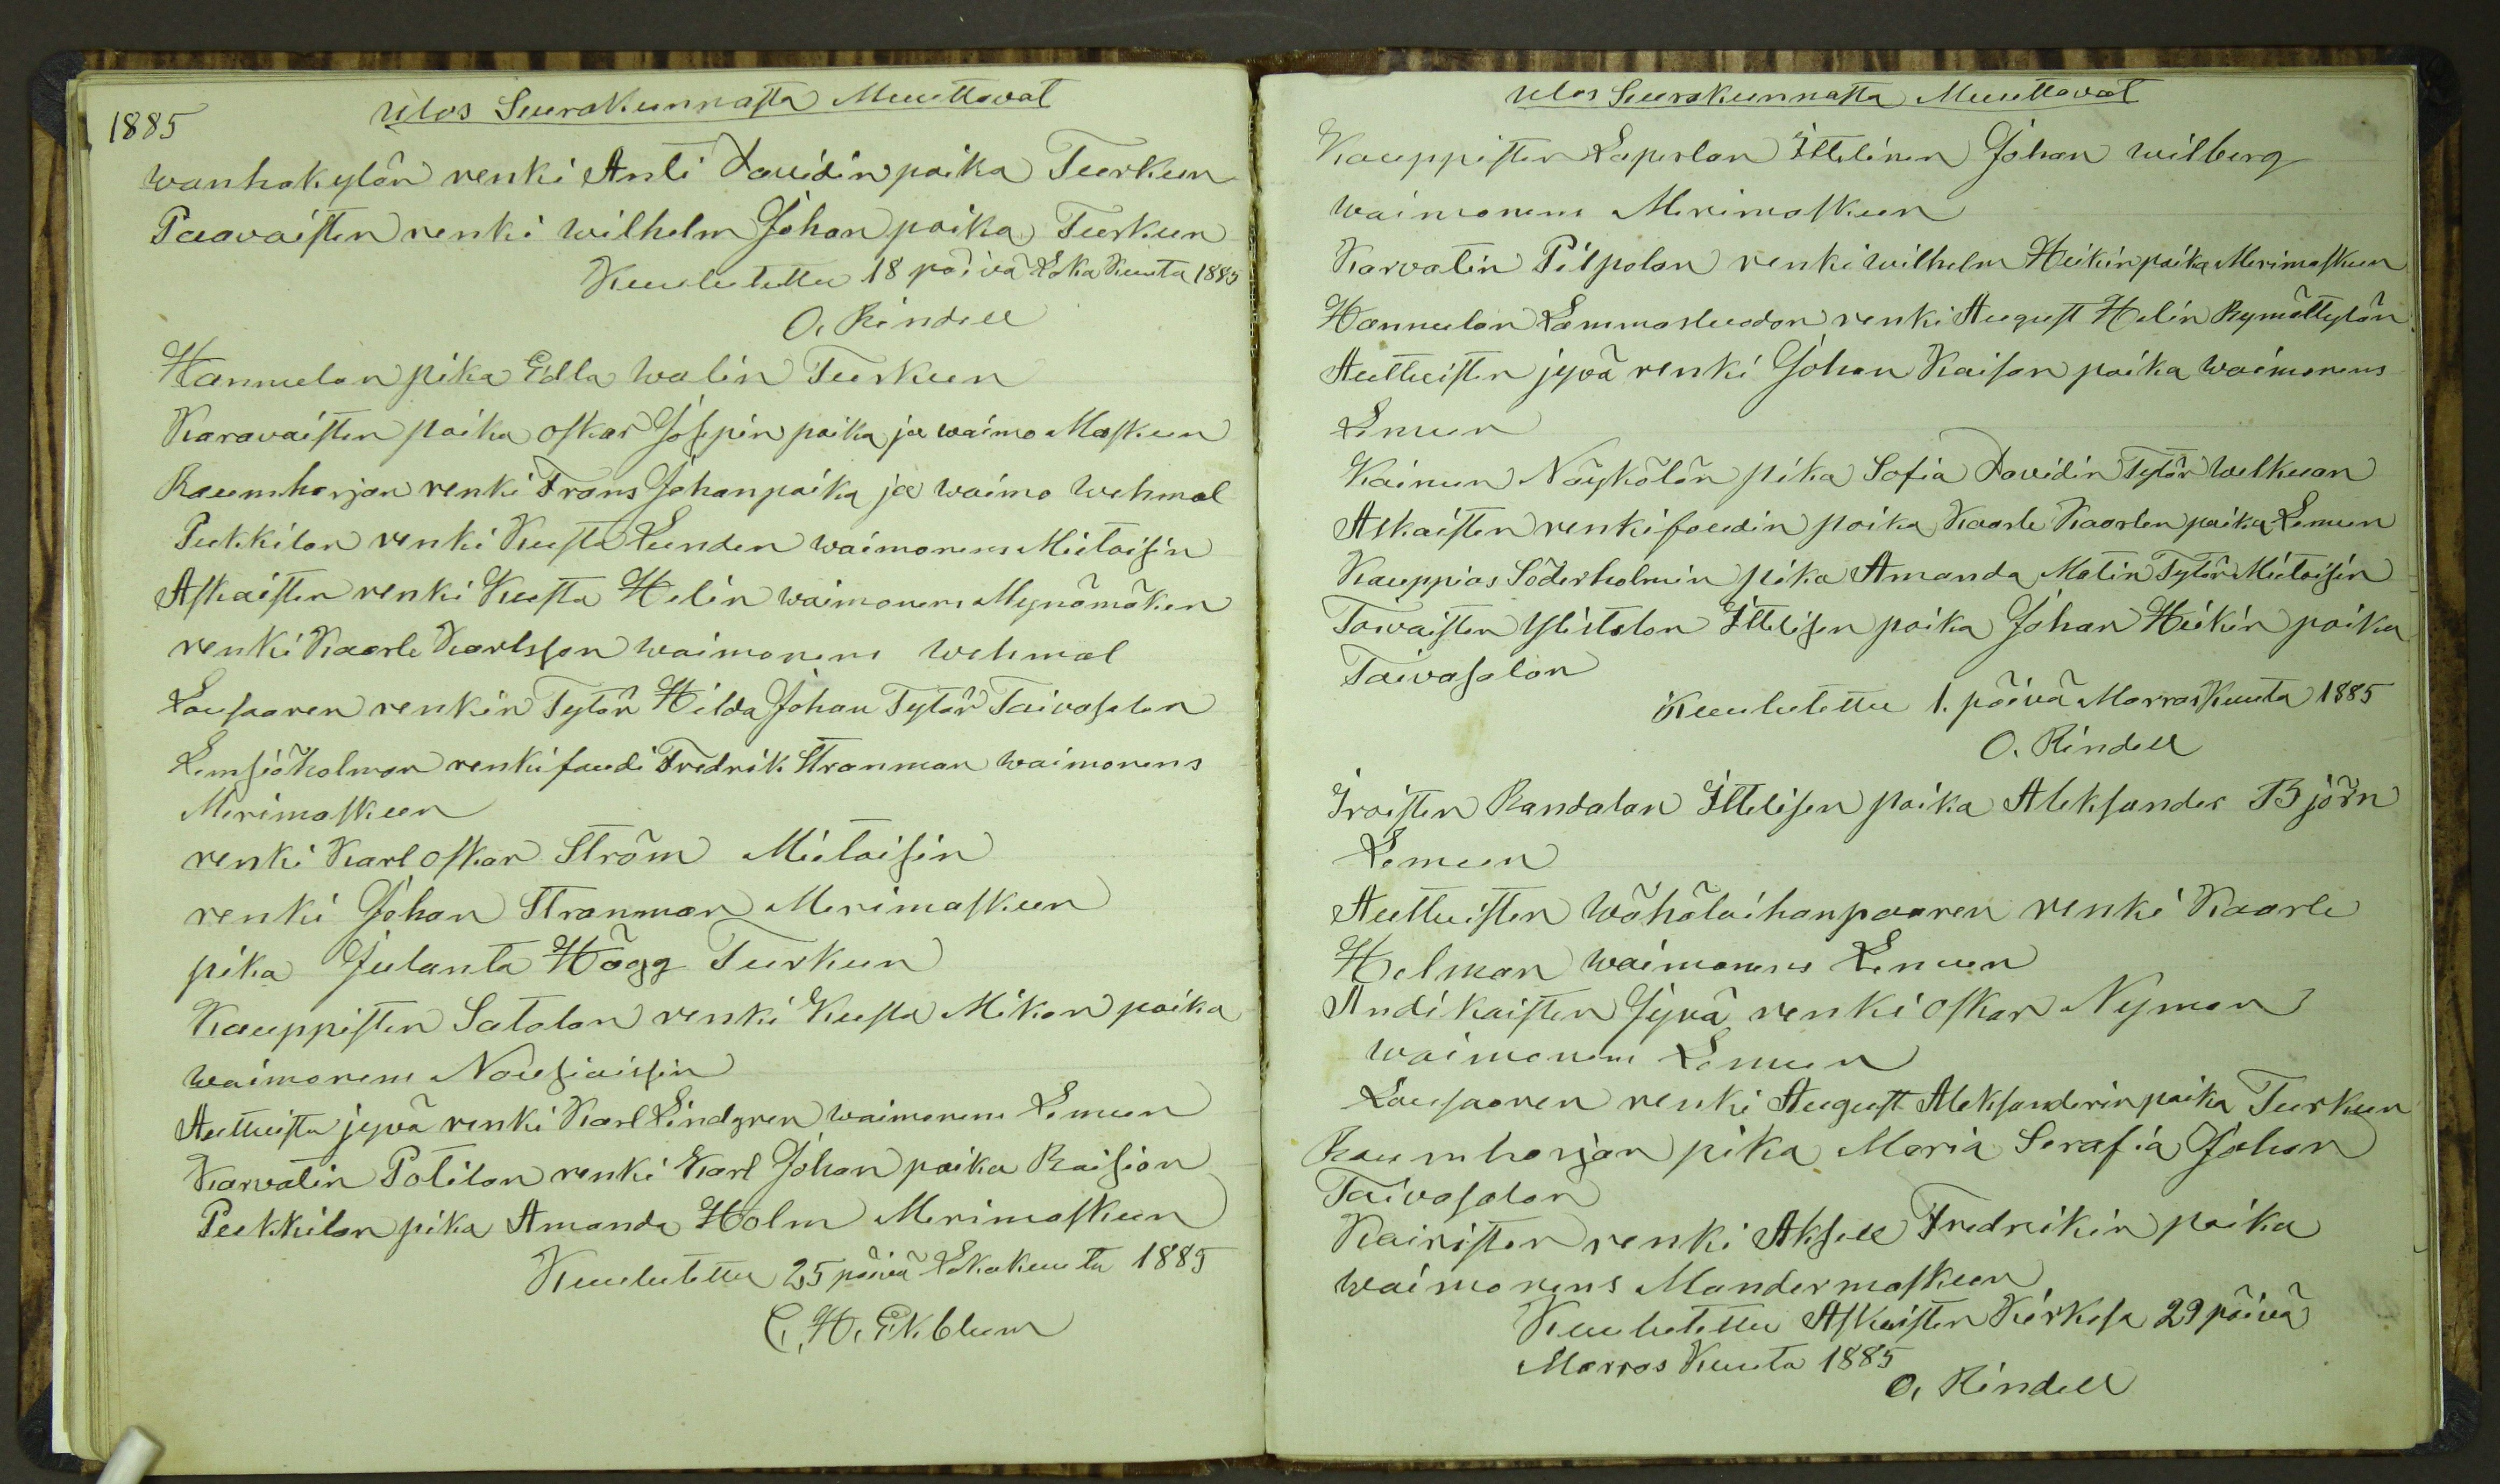 1885
Ulos Seurakunnasta Muuttavat
wanhakylän renki Anti Davidin poika Turkuun
Paavaisten renki wilhelm Johan poika Turkuun
Kuulutettu 18 päivä LokaKuuta 1885
O. Rindell
Hannulan pika Edla walin Turkuun
Karavaisten poika oskar Josepin poika ja waimo Maskuun
Raumharjan renki Frans Johanpoika ja waimo wehmal
Pukkilan renki Kusta Lunden waimonens Mietoisiin
Askaisten renki Kusta Helin waimonens Mynämäken
renki Kaarle Karlsson waimonens wehmal
Lousaaren renkin Tytär Hilda Johan Tytär Taivasalon
Lemsiöholman renkifoudi Fredrik Stranman waimonens
Merimaskuun
renki Karl oskar Ström Mietoisin
renki Johan Stranman Merimaskuun
pika Julanta Högg Turkuun
Kauppisten Satolan renki Kusta Mikon poika
waimonens Nousiaissin
Autuista jyvä renki Karl Lindgren waimonens Lemuun
Karvatin Potilan renki Karl Johan poika Raision
Pukkilan pika Amanda Holm Merimaskuun
Kuulutettu 25 päivä Lokakuuta 1885
C. H. Ekblum
Ulos Seurakunnasta Muuttavat
Kauppisten Laperlan Ittelinen Johan wilberg
waimonens Merimaskuun
Karvatin Pilpolan renki wilhelm Heikinpoika Merimaskuun
Hannulan Lammasluodon renki August Helin Rymättylän
Autuisten jyvä renki Johan Kaisan poika waimonens
Lemuun
Kainun Näykölän pika Sofia Davidin Tytär welkuan
Askaisten renkifoudin poika Kaarle Kaarlen poika Lemuun
Kauppias Söderholmin pika Amanda Matin Tytär Mietoisin
Towaisten Ylistalon Ittelisen poika Johan Heikin poika
Taivasalon
Kuulutettu 1. päivä MarrasKuuta 1885
O. Rindell
Iroisten Randalan Ittelisen poika Aleksander Björn
Lemuun
Autuisten wähätaihanpaaren renki Kaarle
Helman waimonens Lemuun
Andikaisten Jyvä renki oskar Nyman
waimonens Lemuun
Lousaaren renki August Aleksanderin poika Turkuun
Raumharjan pika Maria Serafia Johan
Taivasalon
Kairisten renki Aksell Fredrikin poika
waimonens Mandermaskuun
Kuulutettu Askaisten Kirkosa 29 päivä
Marras Kuuta 1885
O. Rindell